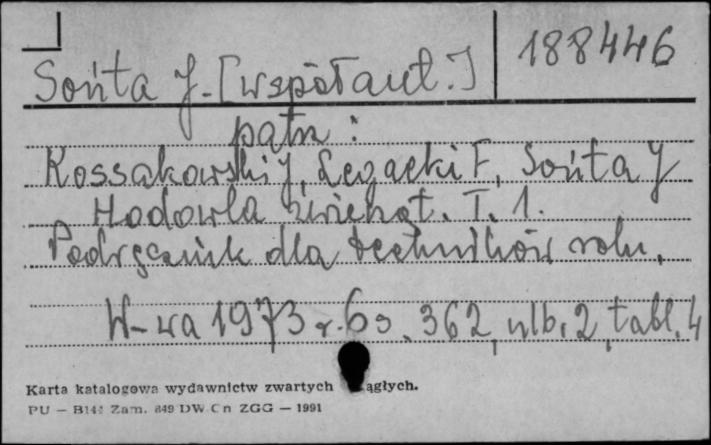 188446
Sońta J. [współaut.]
patrz :
Kossakowski J, Łęgacki F, Sońta J
Hodowla zwierząt. T. 1.
Podręcznik dla techników roln.
W-wa 1973 r. 6 s. 362, nlb. 2, tabl. 4
Karta katalogowa wydawnictw zwartych ągłych.
PU — B144 Zam. 849 DW Cn ZGG — 1991